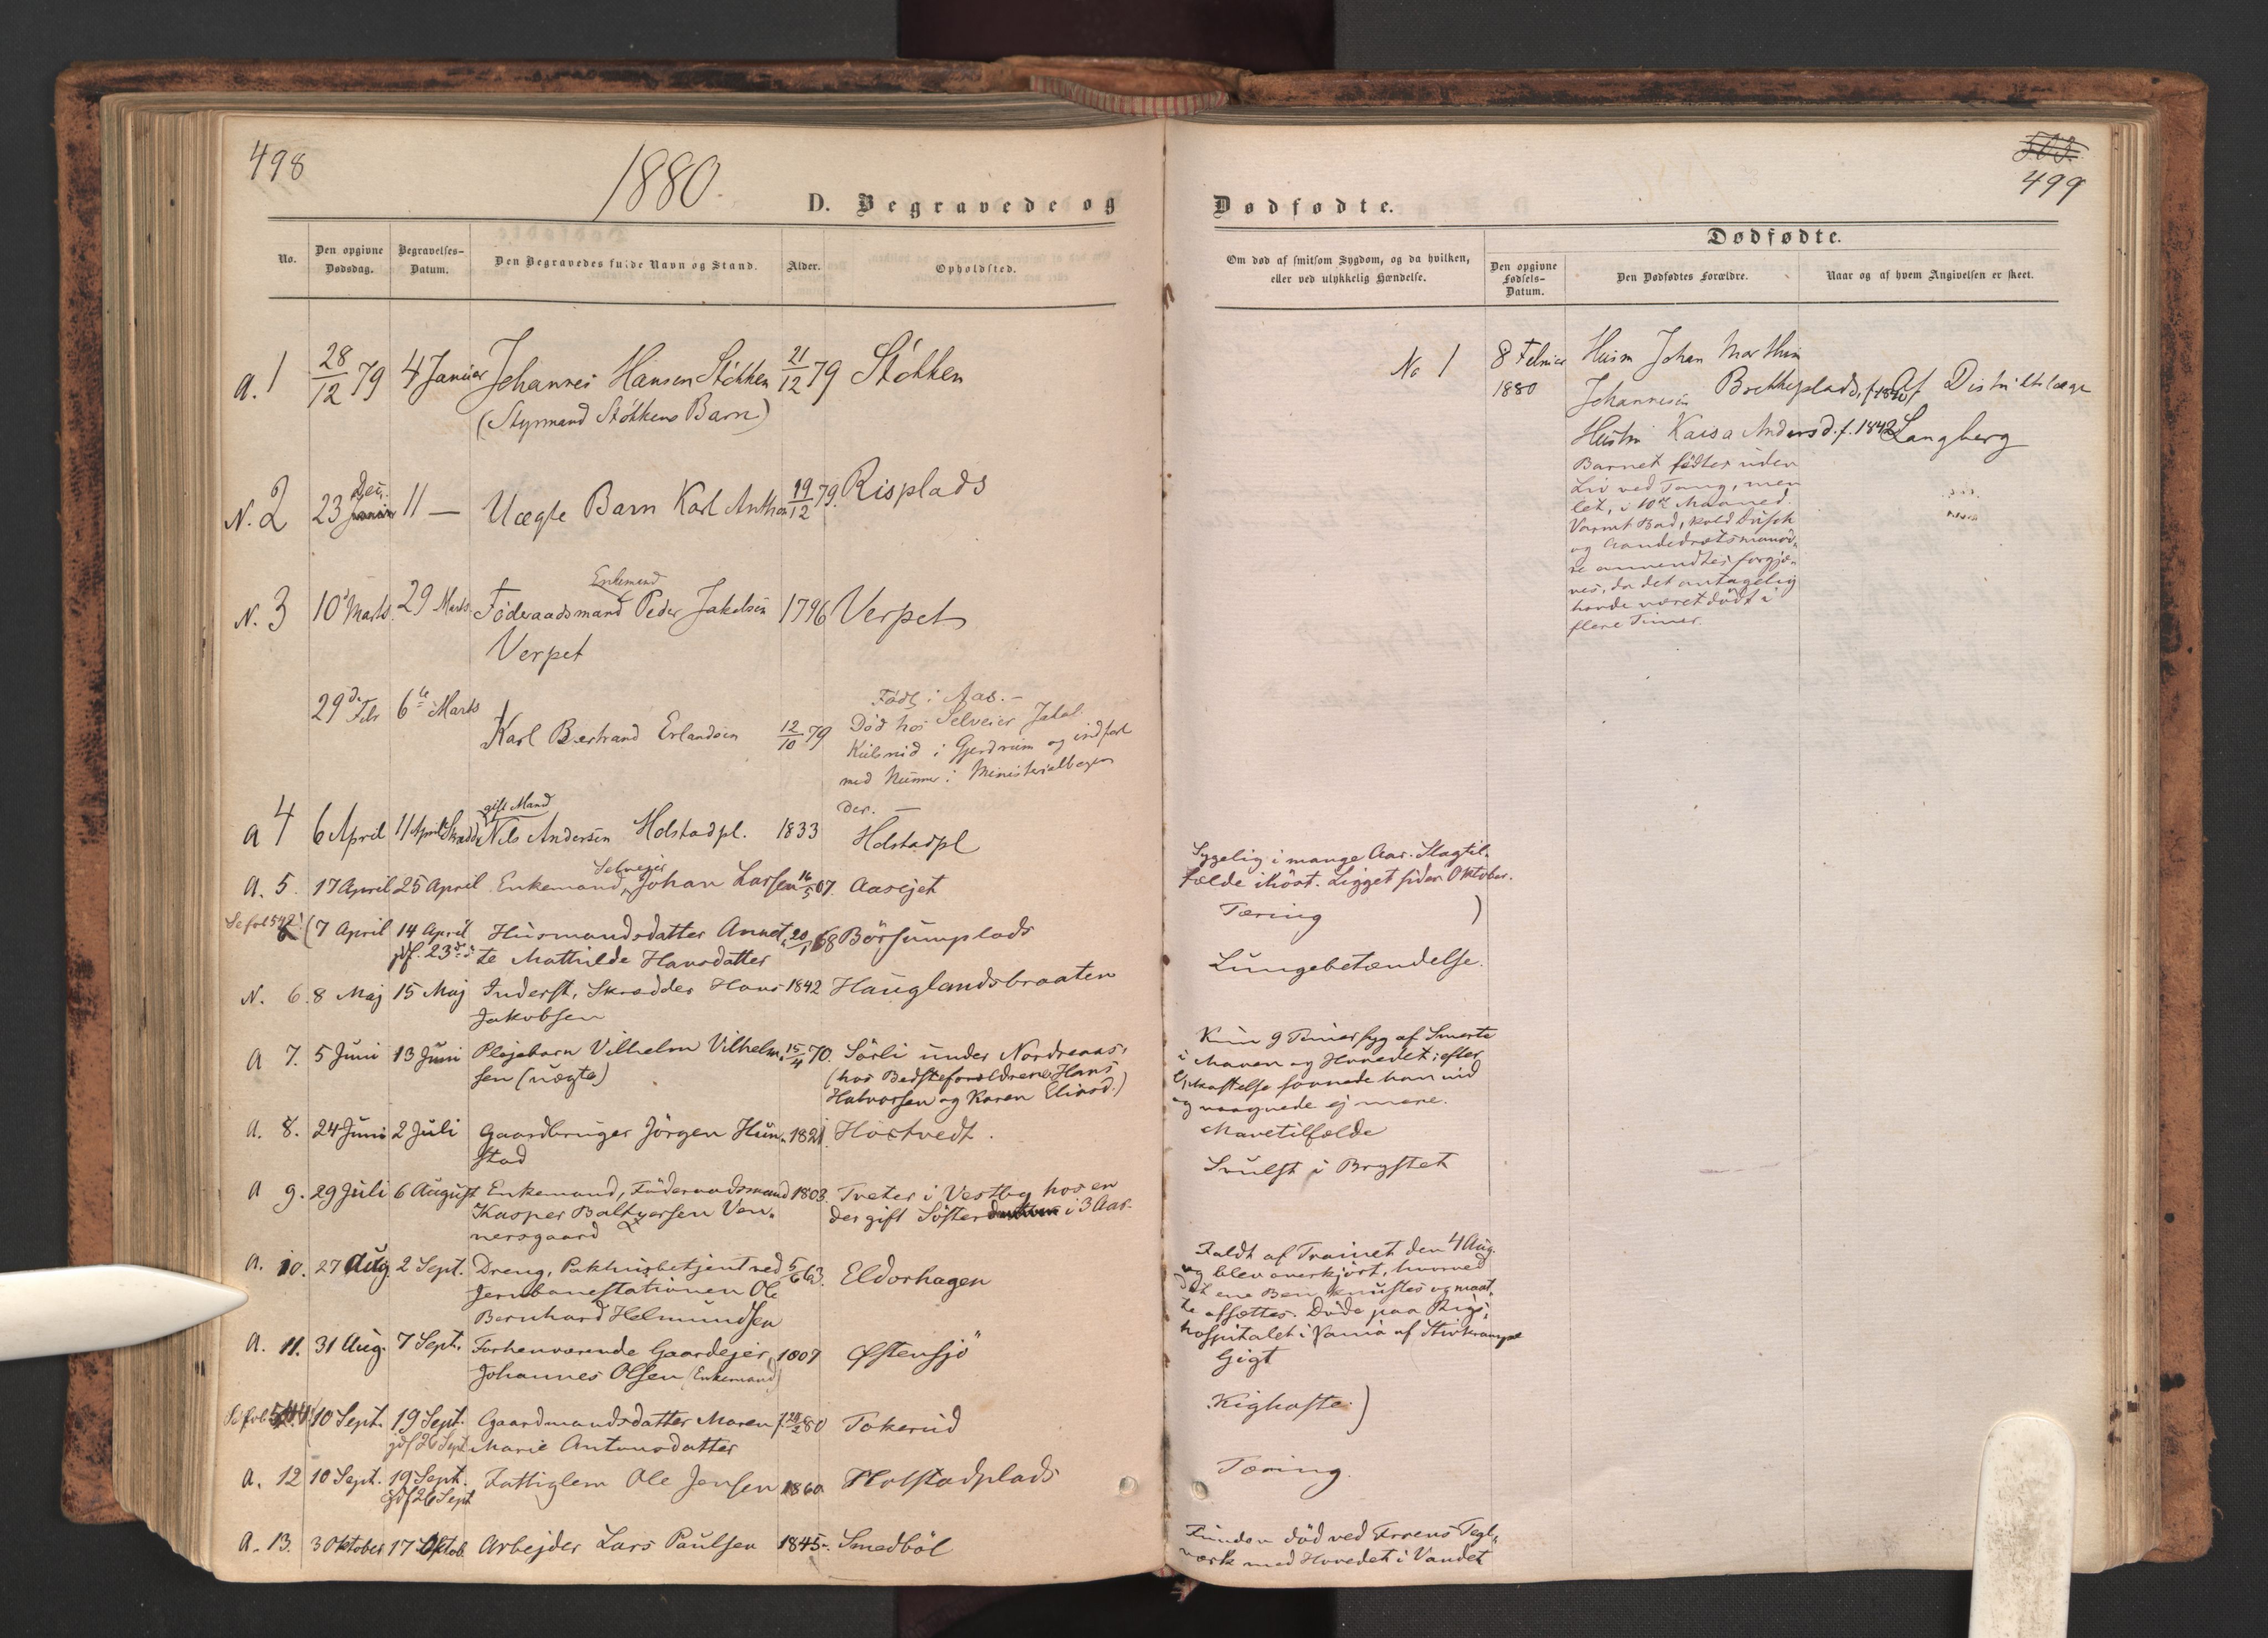 498
1880.
D. Begravede og
No.
Den opgivne Dødsdag.
Begravelses-Datum.
Den Begravedes fulde Navn og Stand.
Alder.
Opholdsted.
a. 1 28/12 79 4 Januar Johannes Hansen Støkken 21/12 79 Støkken
(Styrmand Støkkens Barn)
N. 2 23 Dec. 11 — Uægte Barn Karl Anthon 19/12 79. Risplads
Enkemand
N. 3 10 Marts. 29 Marts Föderaadsmand Peder Jakobsen 1796 Verpet
Verpet
29de Febr 6te Marts Karl Bertrand Erlandsen 12/10 79
Född i Aas. —
Död hos Selveier Jakob
i Gjerdrum og indført
med Nummer i Ministerialbogen
der. —
gift Mand
a 4 6 April 11 April Nils Andersen Holstadpl. 1833 Holstadpl
Selvejer
a. 5. 17 April 25 April Enkemand, Johan Larsen 16/5 07. Aasejet
Se fol 542! (7 April 14 April Husmandsdatter Annet- 20/1 68 Börsumplads
jdf. 23de te Mathilde Hansdatter
N. 6. 8 Maj 15 Maj Inderst, Skrædder Hans 1842 Hauglandsbraaten
Jakobsen
a 7. 5 Juni 13 Juni Plejebarn Vilhelm Vilhelm- 15/4 70. Sörli under Nordreaas,
sen (uægte) (hos Bedsteforældrene Hans
Halvorsen og Karen Eliasd.)
a. 8. 24 Juni 2 Juli Gaardbruger Jörgen Hun- 1821 Hostvedt.
stad
a 9. 29 Juli 6 August Enkemand, Föderaadsmand 1803. Treter i Vestby hos en
Kasper Baltzersen Ven- der gift Söster i 3 Aar.
nersgaard
a. 10. 27 Aug. 2 Sept. Dreng, Pakhusbetjent ved 5/6 63. Eldorhagen
Jernbanestationen Ole
Bernhard Helmundsen
a. 11. 31 Aug. 7 Sept. Forhenværende Gaardejer, 1807 Østensjö
Johannes Olsen (Enkemand)
Se fol 544! (10 Sept. 19 Sept. Gaardmandsdatter Maren f. 80 Tokerud
jdf 26 Sept Marie Antonsdatter
a. 12 10 Sept. 19 Sept. Fattiglem Ole Jensen 1860 Holstadplads
jdf 26 Sept
a. 13. 3 Oktober 17 Oktob. Arbejder Lars Paulsen 1845. Smedböl
505.
499
Dødfødte.
Om død af smitsom Sygdom, og da hvilken,
eller ved ulykkelig Hændelse.
Dødfødte.
Den opgivne Fødsels-Datum.
Den Dødfødtes Forældre.
Naar og af hvem Angivelsen er skeet.
No 1 8 Februar Husm Johan Marthin
1880 Johannesen Brekkeplads, f. 1840 Af Distriktslæge
Hustru Kaisa Andersd. f. 1842 Langberg
Barnet födtes uden
Liv ved Tang, men
let, i 10de Maaned.
Varmt Bad, kold Dusch
og Aandedrætsmanöv-
re anvendtes forgjæ-
ves, da det antagelig
havde været dödt i
flere Timer.
Sygelig i mange Aar. Slagtil-
fælde i Höst. Ligget siden Oktober.
Tæring )
Lungebetændelse.
Kun 9 Timer syg af Smerte
i Maven og Hovedet; efter
Opkastelse sovnede han ind
og vaagnede ej mere.
Mavetilfælde
Svulst i Brystet
Faldt af Trainet den 4 Aug.
og blev overkjört, hvorved
det ene Ben knustes og maat-
te afsættes. Döde paa Rigs-
hospitalet i Xania af Stivkrampe
Gigt
Kighoste.)
Tæring.
Funden död ved Froens Tegl-
værk med Hovedet i Vandet